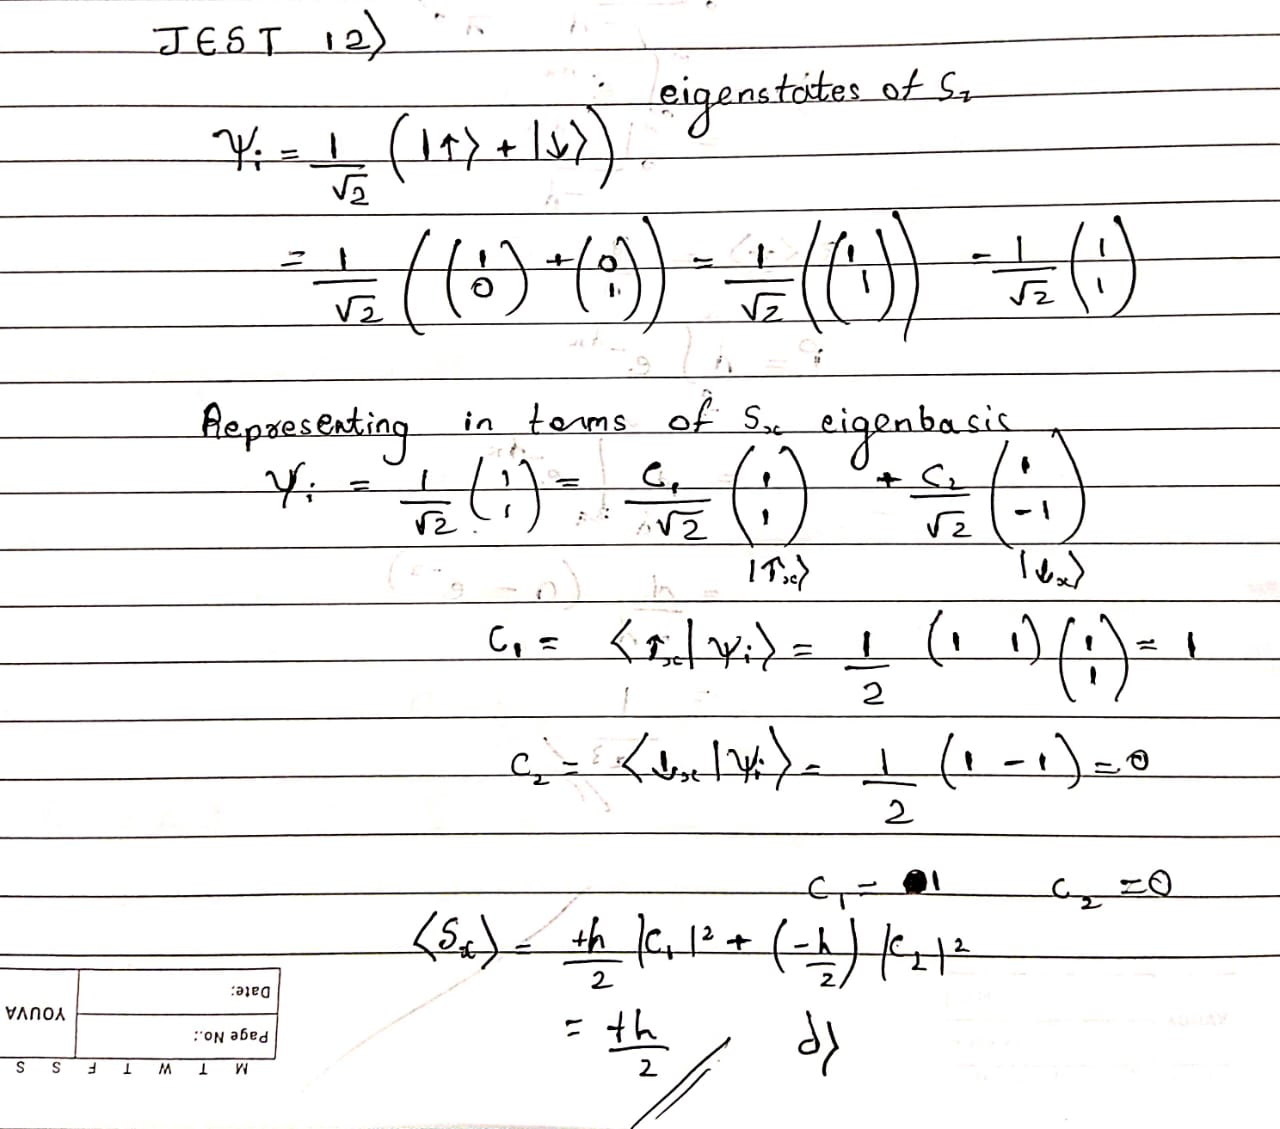 JEST 12)
eigenstates of S_z
ψ_i = 1/√2 (|↑⟩ + |↓⟩)
= 1/√2 ((1 0) + (0 1)) = 1/√2 ((1 1)) = 1/√2 (1 1)
Representing in terms of S_x eigenbasis
ψ_i = 1/√2 (1 1) = C_1/√2 (1 1) + C_2/√2 (1 -1)
|↑_x⟩ |↓_x⟩
C_1 = ⟨↑_x|ψ_i⟩ = 1/2 (1 1) (1 1) = 1
C_2 = ⟨↓_x|ψ_i⟩ = 1/2 (1 - 1) = 0
C_1 = 1 C_2 = 0
⟨S_x⟩ = +ħ/2 |C_1|² + (-ħ/2) |C_2|²
= +ħ/2 d)
YOUVA
Date:
Page No.:
M T W T F S S